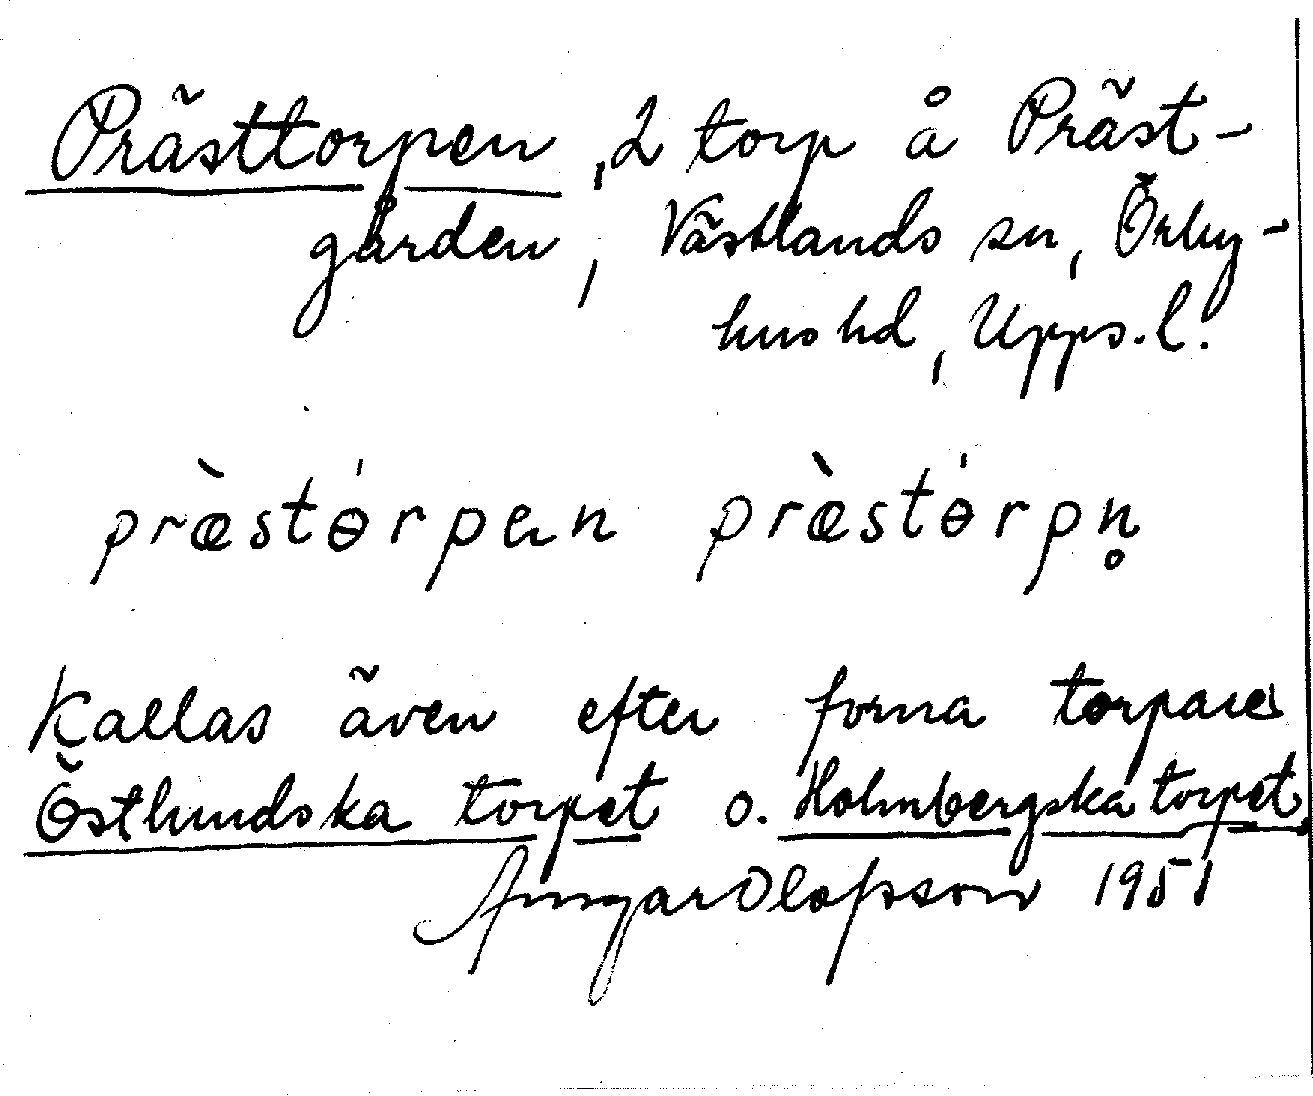 Prästtorpen, 2 torp å Präst-
gården, Västlands sn, Örby-
hus hd, Upps. l.
præ̀stɵ́rpen præ̀stɵ́rpn̥
Kallas även efter forna torpare
Östlundska torpet o. Holmbergska torpet.
Ansgar Olofsson 1951